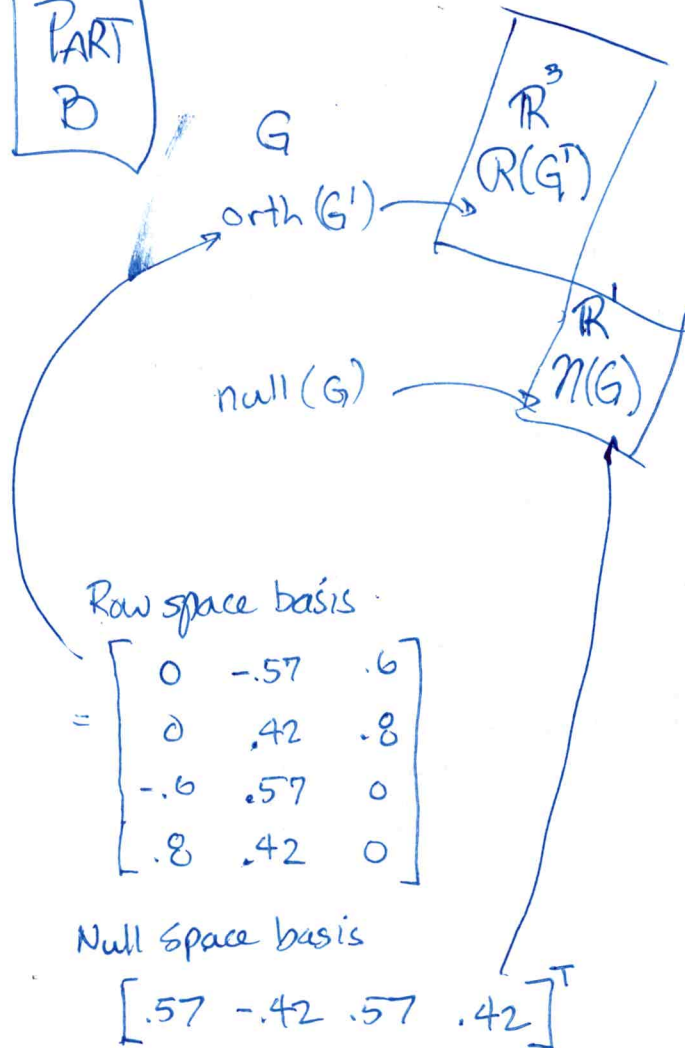 PART
B
G
ℝ³
R(Gᵀ)
orth(G')
ℝ¹
null(G)
η(G)
Row space basis
= [ 0 -.57 .6
0 .42 .8
-.6 .57 0
.8 .42 0 ]
Null space basis
[.57 -.42 .57 .42]ᵀ